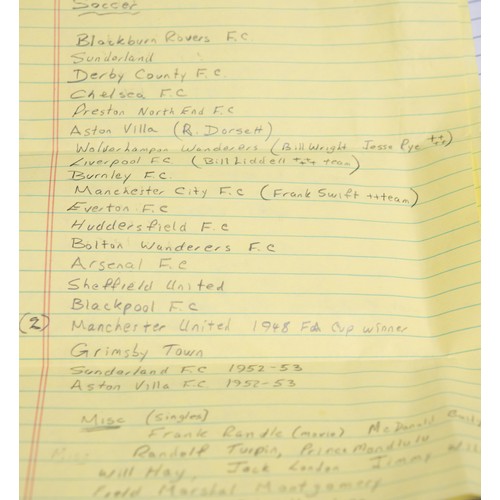 Soccer
Blackburn Rovers F.C
Sunderland
Derby County F.C.
Chelsea F.C
Preston North End F.C
Aston Villa (R. Dorsett)
Wolverhampon Wanderers (Bill Wright Jesse Pye +++)
Liverpool F.C (Bill Liddell +++ team)
Burnley F.C.
Manchester City F.C (Frank Swift ++team)
Everton F.C
Huddersfield F.C
Bolton Wanderers F.C
Arsenal F.C
Sheffield United
Blackpool F.C
(2) Manchester United 1948 FA Cup Winner
Grimsby Town
Sunderland F.C 1952-53
Aston Villa F.C 1952-53
Misc (singles)
Frank Randle (movie) McDonald
Randolf Turpin, Prince Monolulu
Will Hay, Jack London Jimmy
Field Marshal Montgomery